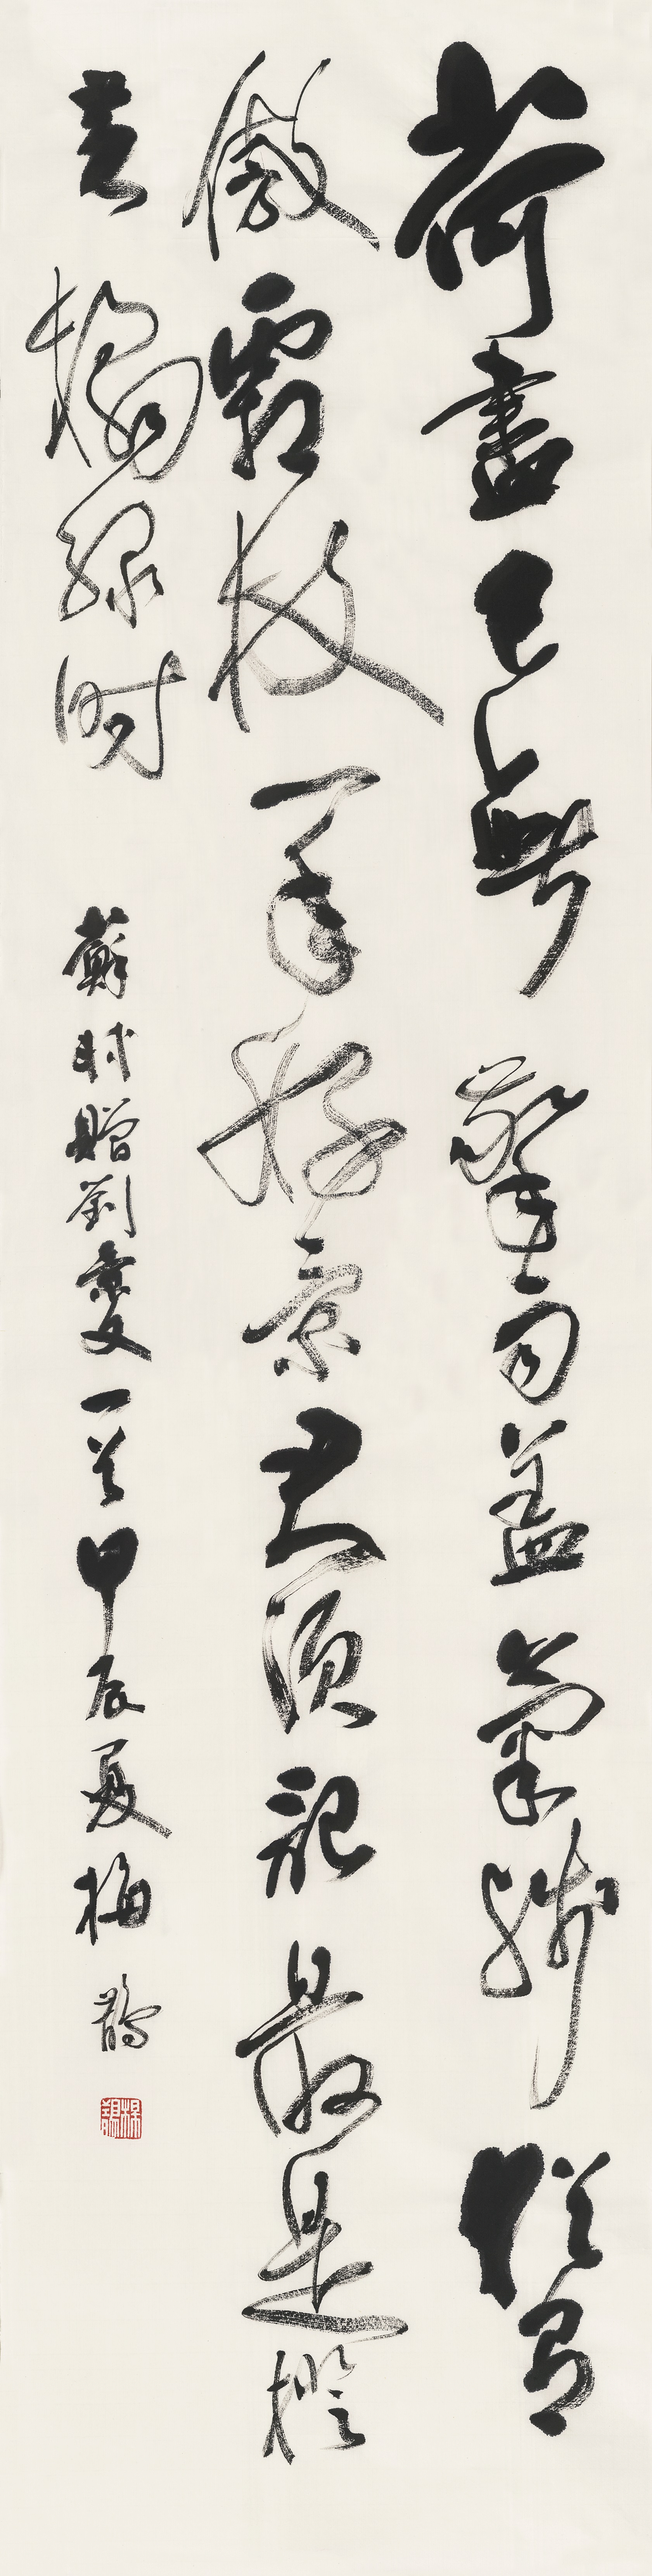 荷盡已無擎雨蓋菊殘猶有
傲霜枝一年好景君須記最是橙
黃橘綠時 蘇軾贈劉景文一首 甲辰夏梅